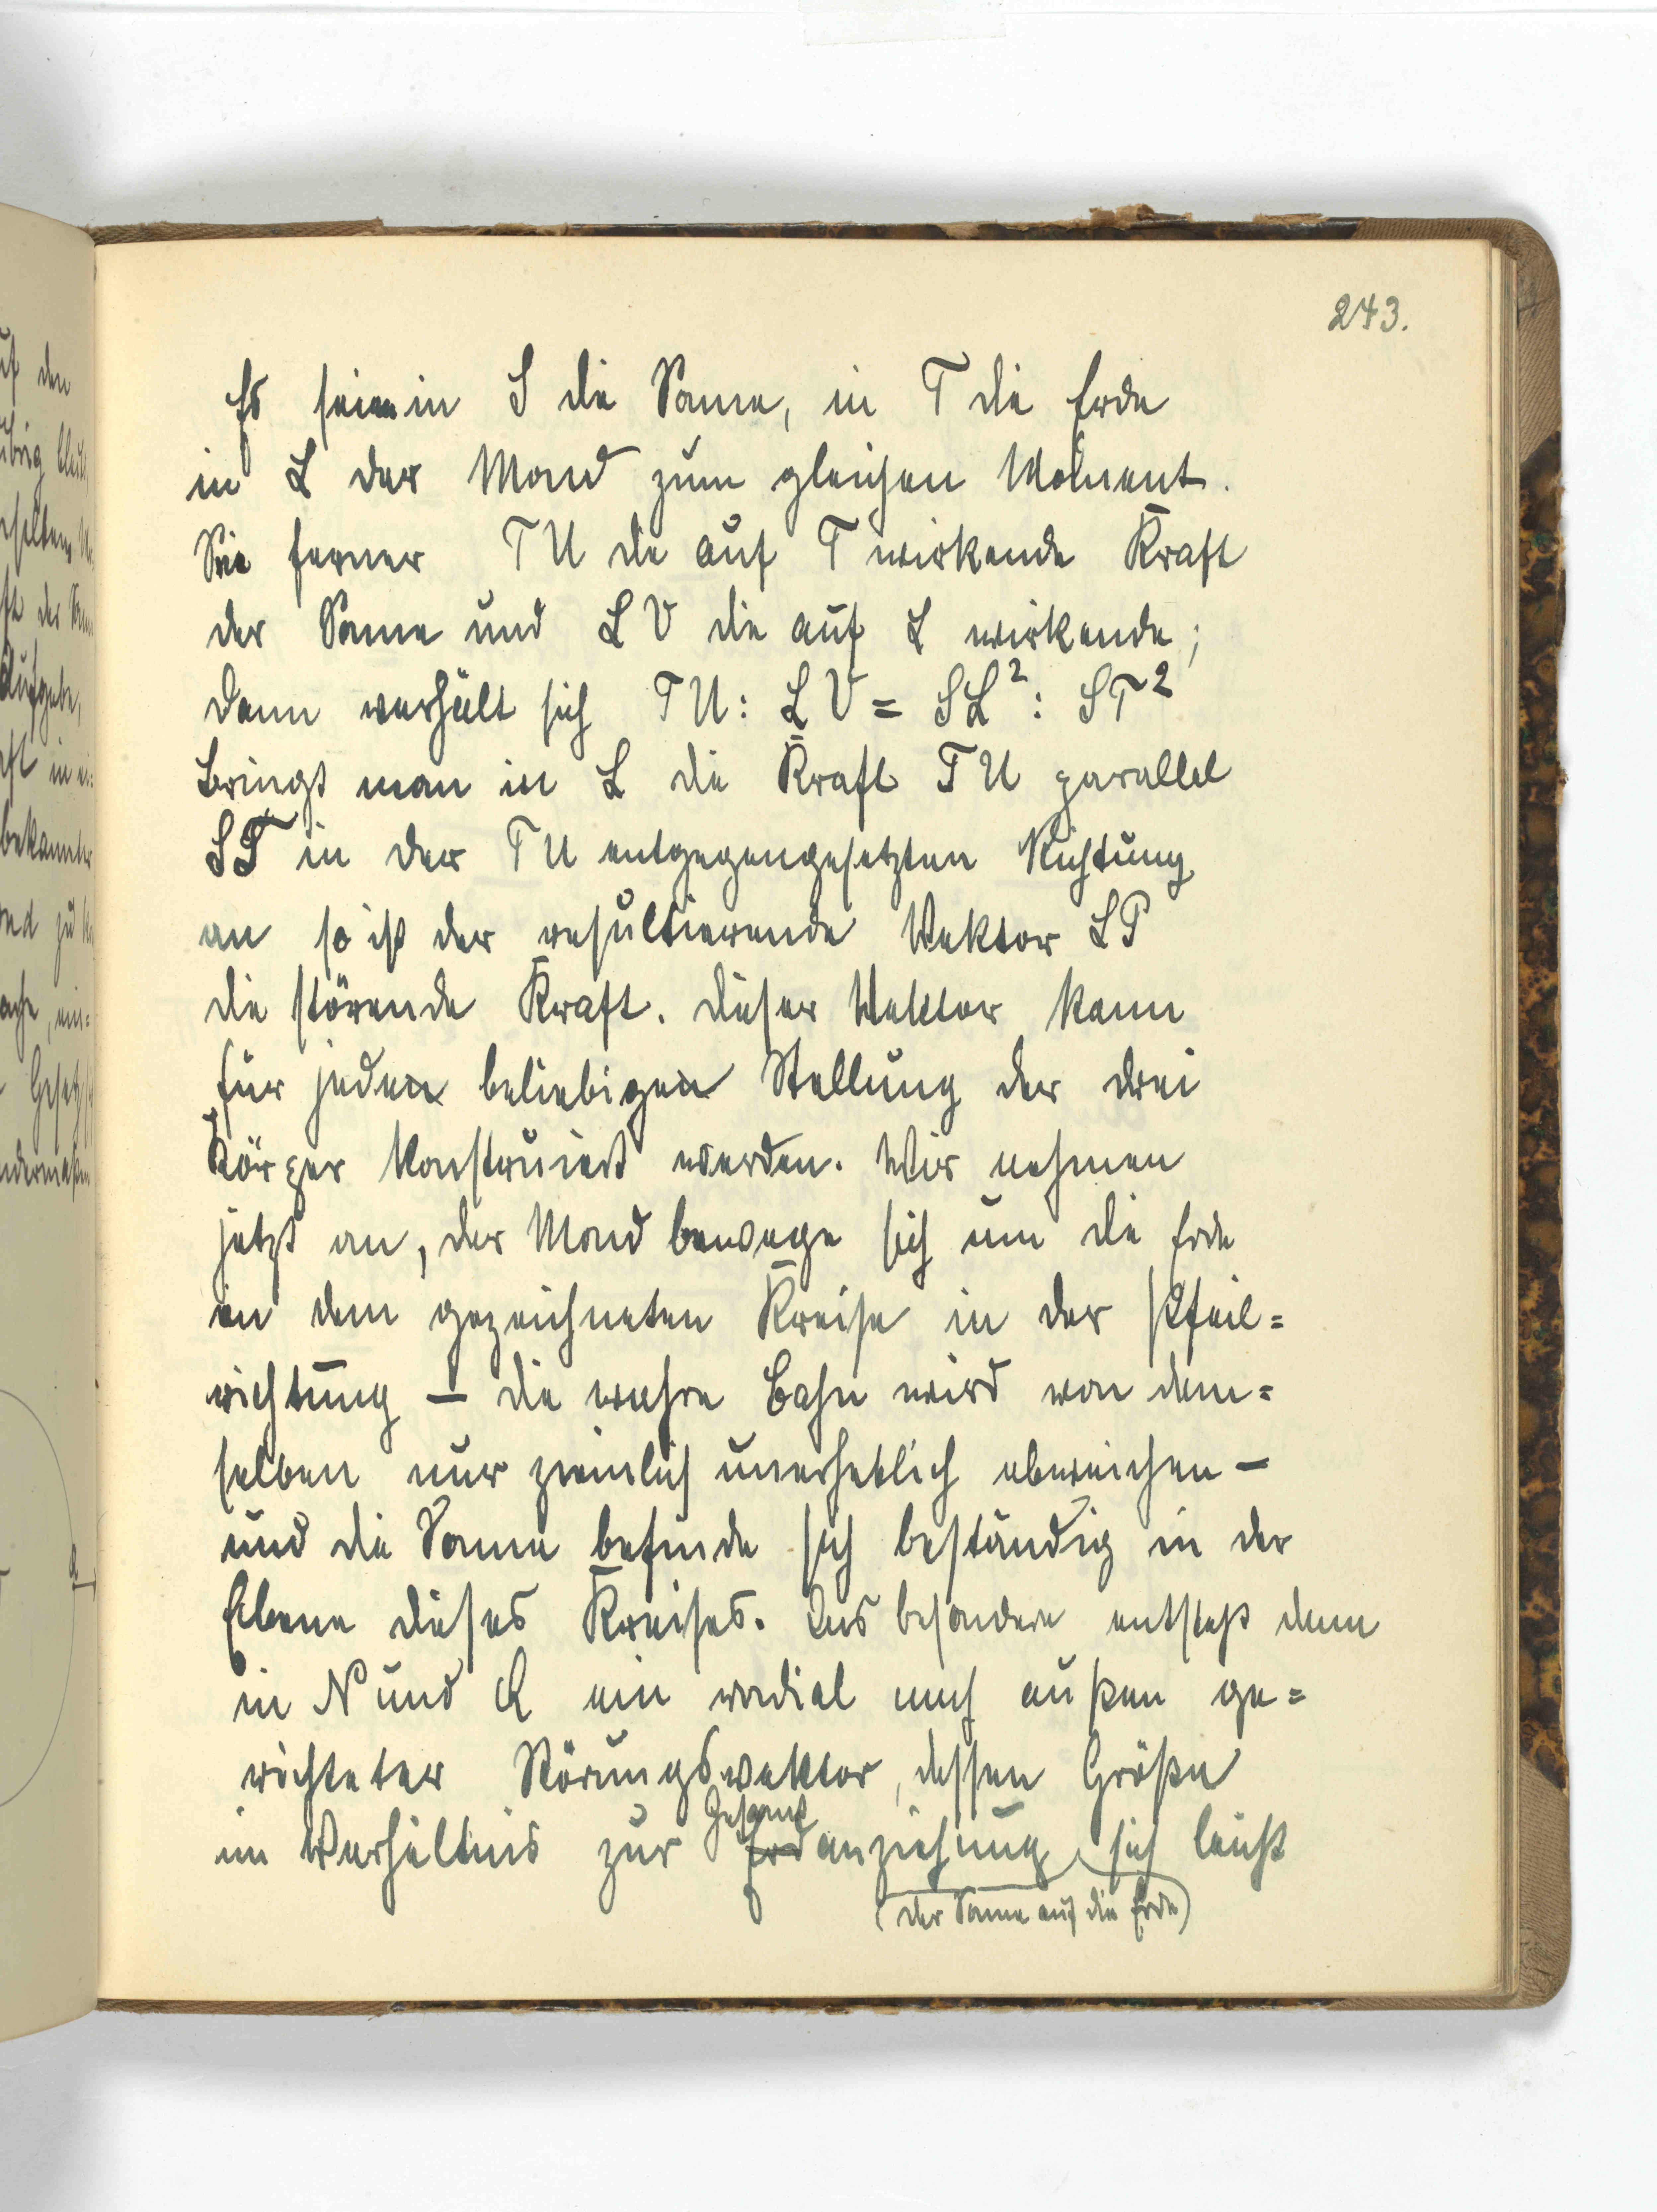 243.
Es sei in S die Sonne, in T die Erde
in L der Mond zum gleichen Moment.
Sei ferner TU die auf T wirkende Kraft
der Sonne und LV die auf L wirkende;
dann verhält sich TU : LV = SL² : ST²
Bringt man in L die Kraft TU parallel
ST in der TU entgegengesetzten Richtung
an so ist der resultierende Vektor LP
die störende Kraft. Dieser Vektor kann
für jeden beliebigen Stellung der drei
Körper konstruiert werden. Wir nehmen
jetzt an, der Mond bewege sich um die Erde
in dem gezeichneten Kreise in der Pfeil=
richtung – die wahre Bahn wird von dem=
selben nur ziemlich unerheblich abweichen –
und die Sonne befinde sich beständig in der
Ebene dieses Kreises. Ins besondere entsteht dann
in N und Q ein radial nach außen ge=
richteter Störungsvektor, dessen Größe
Gesamt
im Verhältnis zur Erdanziehung sich leicht
(der Sonne auf die Erde)